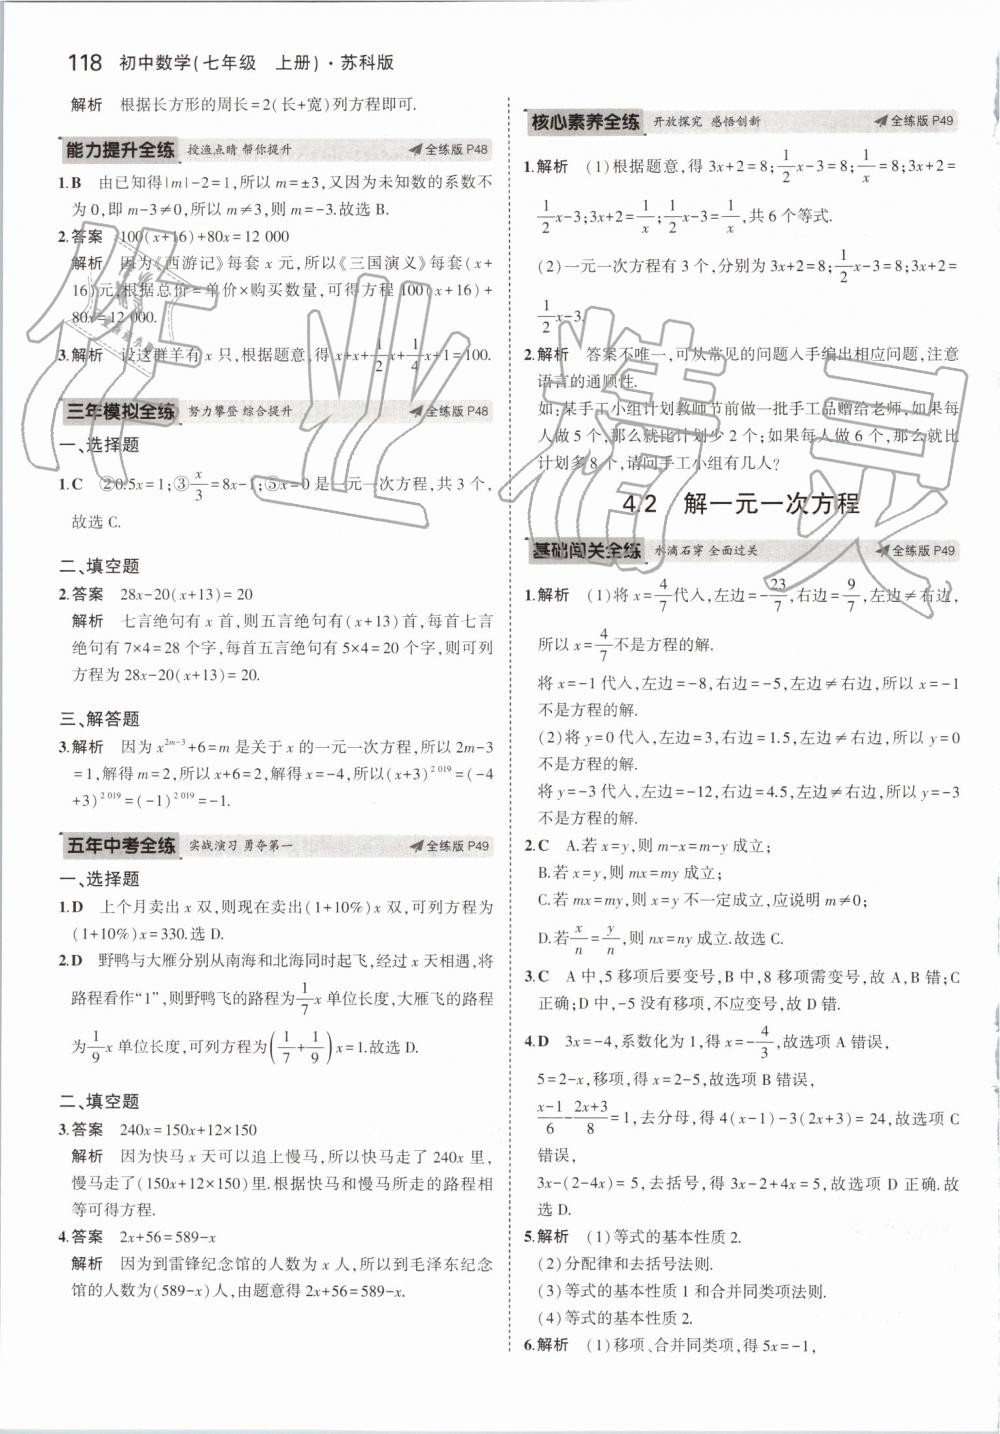 118 初中数学(七年级 上册)·苏科版
解析 根据长方形的周长=2(长+宽)列方程即可.
能力提升全练 授渔点睛 帮你提升 全练版 P48
1.B 由已知得|m|-2=1,所以 m=±3,又因为未知数的系数不
为 0,即 m-3≠0,所以 m≠3,则 m=-3.故选 B.
2.答案 100(x+16)+80x=12 000
解析 因为《西游记》每套 x 元,所以《三国演义》每套(x+
16)元,根据总价=单价×购买数量,可得方程 100(x+16)+
80x=12 000.
3.解析 设这群羊有 x 只,根据题意,得 x+x+1/2x+1/4x+1=100.
三年模拟全练 努力攀登 综合提升 全练版 P48
一、选择题
1.C ②0.5x=1;③x/3=8x-1;⑤x=0 是一元一次方程,共 3 个,
故选 C.
二、填空题
2.答案 28x-20(x+13)=20
解析 七言绝句有 x 首,则五言绝句有(x+13)首,每首七言
绝句有 7×4=28 个字,每首五言绝句有 5×4=20 个字,则可列
方程为 28x-20(x+13)=20.
三、解答题
3.解析 因为 x^(2m-3)+6=m 是关于 x 的一元一次方程,所以 2m-3
=1,解得 m=2,所以 x+6=2,解得 x=-4,所以(x+3)^(2 019)=(-4
+3)^(2 019)=(-1)^(2 019)=-1.
五年中考全练 实战演习 勇夺第一 全练版 P49
一、选择题
1.D 上个月卖出 x 双,则现在卖出(1+10%)x 双,可列方程为
(1+10%)x=330.选 D.
2.D 野鸭与大雁分别从南海和北海同时起飞,经过 x 天相遇,将
路程看作“1”,则野鸭飞的路程为1/7x 单位长度,大雁飞的路程
为1/9x 单位长度,可列方程为(1/7+1/9)x=1.故选 D.
二、填空题
3.答案 240x=150x+12×150
解析 因为快马 x 天可以追上慢马,所以快马走了 240x 里,
慢马走了(150x+12×150)里.根据快马和慢马所走的路程相
等可得方程.
4.答案 2x+56=589-x
解析 因为到雷锋纪念馆的人数为 x 人,所以到毛泽东纪念
馆的人数为(589-x)人,由题意得 2x+56=589-x.
核心素养全练 开放探究 感悟创新 全练版 P49
1.解析 (1)根据题意,得 3x+2=8;1/2x-3=8;1/x=8;3x+2=
1/2x-3;3x+2=1/x;1/2x-3=1/x,共 6 个等式.
(2)一元一次方程有 3 个,分别为 3x+2=8;1/2x-3=8;3x+2=
1/2x-3.
2.解析 答案不唯一,可从常见的问题入手编出相应问题,注意
语言的通顺性.
如:某手工小组计划教师节前做一批手工品赠给老师,如果每
人做 5 个,那么就比计划少 2 个;如果每人做 6 个,那么就比
计划多 8 个,请问手工小组有几人?
4.2 解一元一次方程
基础闯关全练 水滴石穿 全面过关 全练版 P49
1.解析 (1)将 x=4/7代入,左边=-23/7,右边=9/7,左边≠右边,
所以 x=4/7不是方程的解.
将 x=-1 代入,左边=-8,右边=-5,左边≠右边,所以 x=-1
不是方程的解.
(2)将 y=0 代入,左边=3,右边=1.5,左边≠右边,所以 y=0
不是方程的解.
将 y=-3 代入,左边=-12,右边=4.5,左边≠右边,所以 y=-3
不是方程的解.
2.C A.若 x=y,则 m-x=m-y 成立;
B.若 x=y,则 mx=my 成立;
C.若 mx=my,则 x=y 不一定成立,应说明 m≠0;
D.若x/n=y/n,则 nx=ny 成立.故选 C.
3.C A 中,5 移项后要变号,B 中,8 移项需变号,故 A,B 错;C
正确;D 中,-5 没有移项,不应变号,故 D 错.
4.D 3x=-4,系数化为 1,得 x=-4/3,故选项 A 错误,
5=2-x,移项,得 x=2-5,故选项 B 错误,
(x-1)/6-(2x+3)/8=1,去分母,得 4(x-1)-3(2x+3)=24,故选项 C
错误,
3x-(2-4x)=5,去括号,得 3x-2+4x=5,故选项 D 正确.故
选 D.
5.解析 (1)等式的基本性质 2.
(2)分配律和去括号法则.
(3)等式的基本性质 1 和合并同类项法则.
(4)等式的基本性质 2.
6.解析 (1)移项、合并同类项,得 5x=-1,
作业精灵